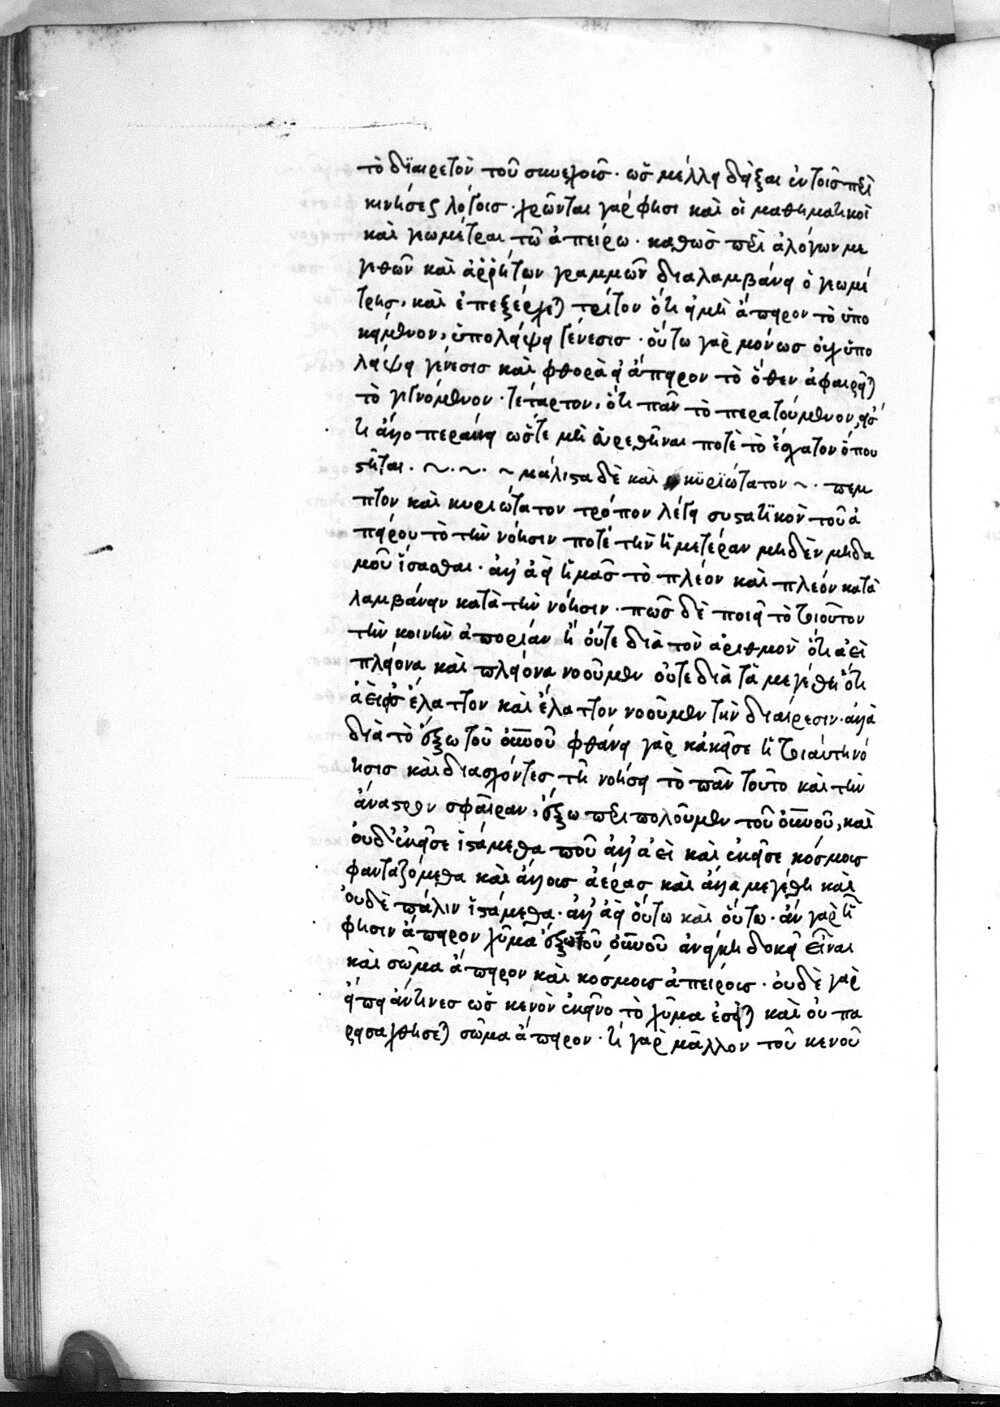 τὸ διαιρετὸν τοῦ συνεχοῦς · ὡς μέλλει δεῖξαι ἐν τοῖς περὶ
κινήσεως λόγοις · χρῶνται γάρ φησι καὶ οἱ μαθηματικοὶ
καὶ γεωμέτραι τῶ ἀπείρω · καθὼς περὶ ἀλόγων με
γεθῶν καὶ ἀῤῥήτων γραμμῶν διαλαμβάνει ὁ γεωμέ
τρης, καὶ ἐπεξέρχεται τρίτον ὅτι εἰ μὴ ἄπειρον τὸ ὑπο
κείμενον, ὑπολείψει γένεσις · οὕτω γὰρ μόνως οὐχ ὑπο
λείψει γένεσις καὶ φθορὰ εἰ ἄπειρον τὸ ὅθεν ἀφαιρεῖται
τὸ γιγνόμενον · τέταρτον, ὅτι πᾶν τὸ περατούμενον, εἴς
τι ἄλλο περαίνει ὥστε μὴ εὑρεθῆναι ποτὲ τὸ ἔσχατον ὅπου
στῆται · ~ · ~ · ~ μάλιστα δὲ καὶ κυριώτατον ~ · πεμ
πτον καὶ κυριώτατον τρόπον λέγει συστατικὸν τοῦ ἀ
πείρου τὸ τὴν νόησιν ποτὲ τὴν ἡμετέραν μηδὲν μηδα
μοῦ ἵστασθαι · ἀλλ' ἀεὶ ἡμᾶς τὸ πλέον καὶ πλέον κατα
λαμβάνειν κατὰ τὴν νόησιν · πῶς δὲ ποιεῖ τὸ τοιοῦτον
τὴν κοινὴν ἀπορίαν ἢ οὔτε διὰ τὸν ἀριθμὸν ὅτι ἀεὶ
πλείονα καὶ πλείονα νοοῦμεν οὔτε διὰ τὰ μεγέθη ὅτι
ἀεὶ ἔλαττον καὶ ἔλαττον νοοῦμεν τὴν διαίρεσιν · ἀλλὰ
διὰ τὸ ἔξω τοῦ οὐρανοῦ φθάνει γὰρ κἀκεῖσε ἡ τοιαύτη νό
ησις καὶ διασχόντες τῆ νοήσει τὸ πᾶν τοῦτο καὶ τὴν
ἄναστρον σφαῖραν, ἔξω περιπολοῦμεν τοῦ οὐρανοῦ, καὶ
οὐδ' ἐκεῖσε ἱστάμεθα που ἀλλ' ἀεὶ καὶ ἐκεῖσε κόσμοις
φανταζόμεθα καὶ ἄλλοις ἀέρας καὶ ἄλλα μεγέθη καὶ
οὐδὲ πάλιν ἱστάμεθα · ἀλλ' ἀεὶ οὕτω καὶ οὕτω · ἂν γὰρ ἦ
φησιν ἄπειρον χύμα ἔξω τοῦ οὐρανοῦ ἀνάγκη δοκεῖ εἶναι
καὶ σῶμα ἄπειρον καὶ κόσμοις ἀπείροις · οὐδὲ γὰρ
εἴπῃ ἄν τινες ὡς κενὸν ἐκεῖνο τὸ χύμα ἔσεται καὶ οὐ πα
ρεισαχθήσεται σῶμα ἄπειρον · τί γὰρ μᾶλλον τοῦ κενοῦ